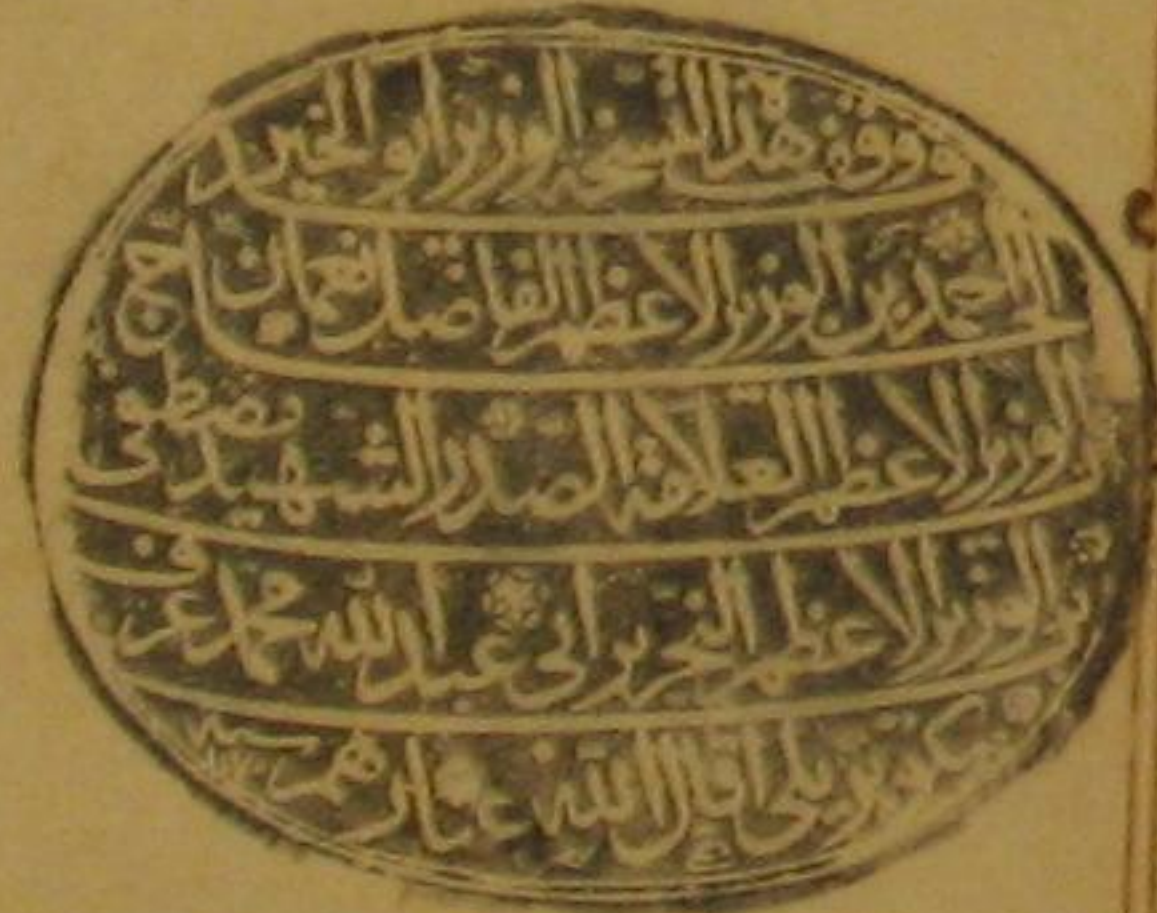 وقف هذا النسخة الوزير ابو الخير
الحاج احمد بن الوزير الاعظم الفاضل نعمان
بن الوزير الاعظم العلامة الصدر الشهيد مصطفى
بن الوزير الاعظم النحرير ابي عبد الله محمد عرف
بكوپريلي اقال الله عثارهم سنة